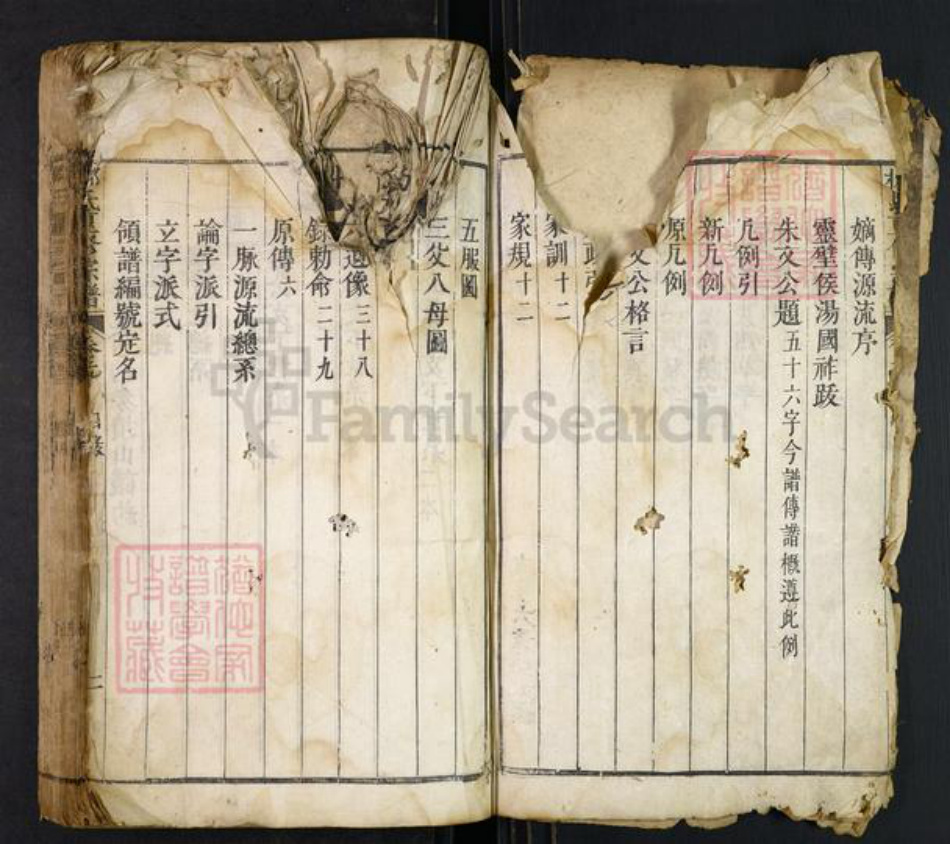 嫡傳源流序
靈璧侯湯國祚跋
朱文公題五十六字今譜傳譜概遵此例
凡例引
新凡例
原凡例
文公格言
家訓十二
家規十二
五服圖
三父八母圖
遺像三十八
錄勅命二十九
原傳六
一脈源流總系
論字派引
立字派式
領譜編號定名
二
譜學會
收藏
FamilySearch